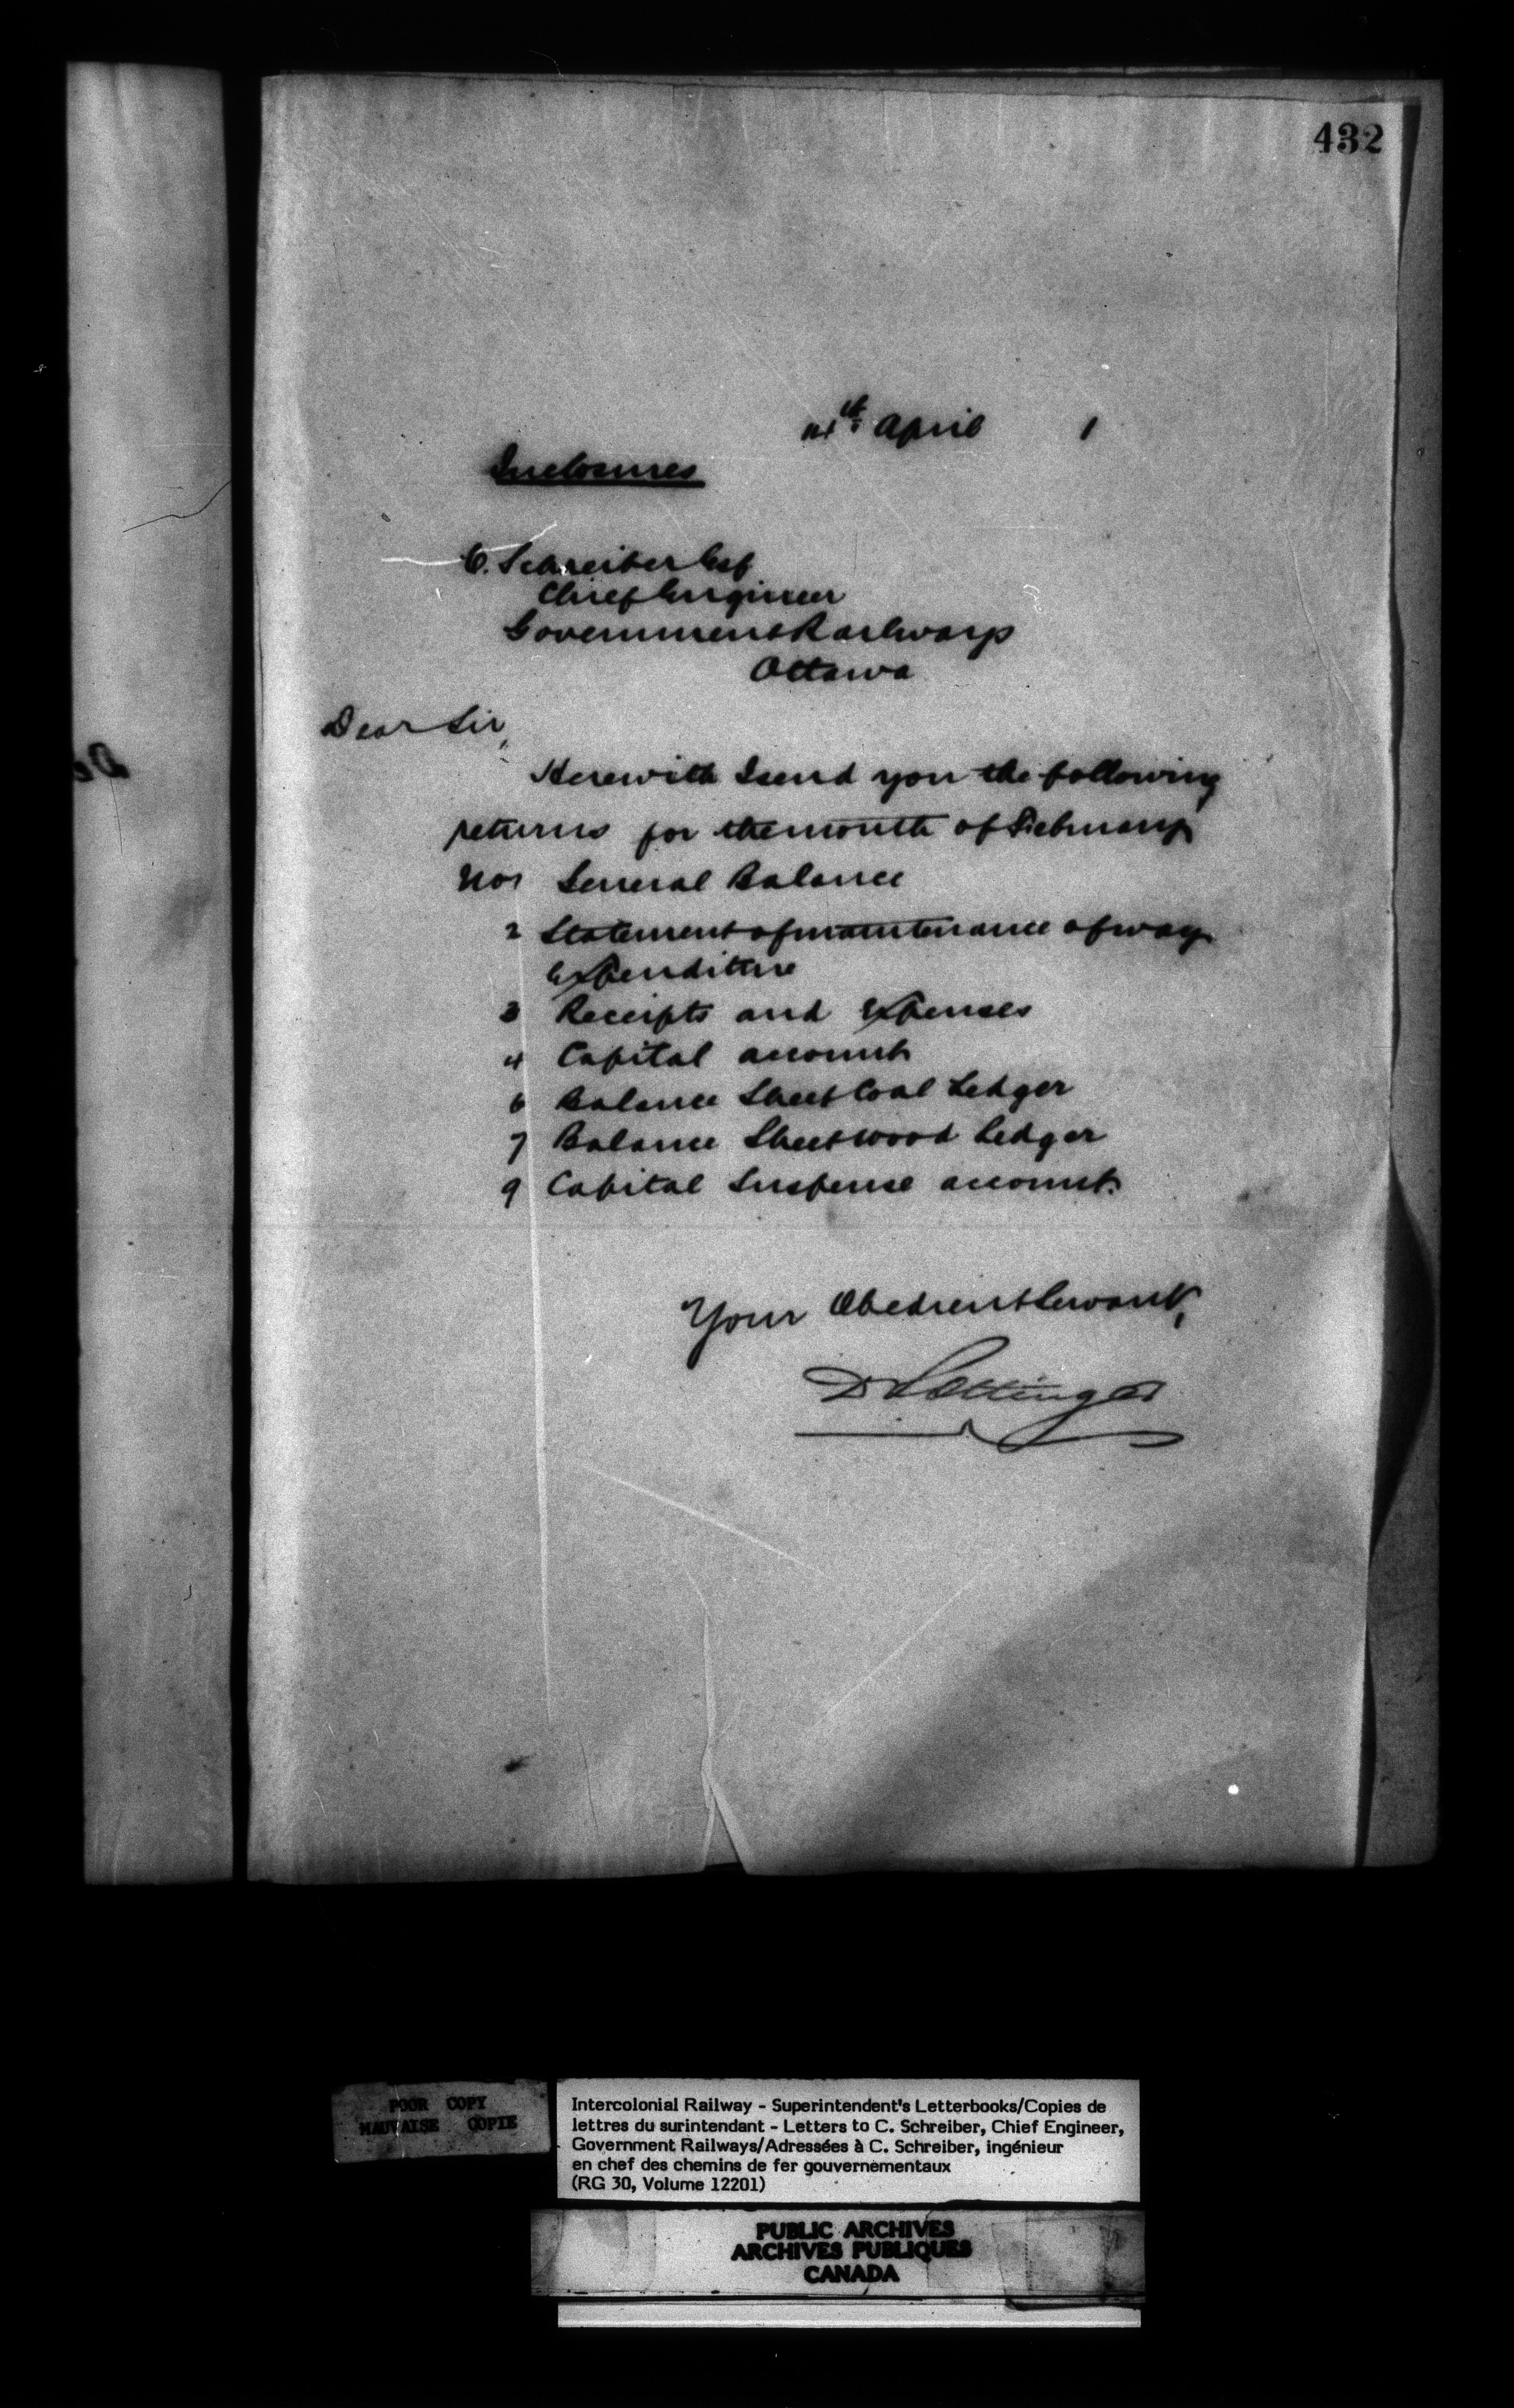 432
4th April 1
Inclosures
C. Schreiber Esq
Chief Engineer
Government Railways
Ottawa
Dear Sir,
Herewith I send you the following
returns for the month of February
No 1 General Balance
2 Statement of maintenance of way
Expenditure
3 Receipts and Expenses
4 Capital account
6 Balance Sheet Coal Ledger
7 Balance Sheet Wood Ledger
9 Capital Suspense account.
Your Obedient Servant,
D Pottinger
POOR COPY
MAUVAISE COPIE
Intercolonial Railway - Superintendent's Letterbooks/Copies de
lettres du surintendant - Letters to C. Schreiber, Chief Engineer,
Government Railways/Adressées à C. Schreiber, ingénieur
en chef des chemins de fer gouvernementaux
(RG 30, Volume 12201)
PUBLIC ARCHIVES
ARCHIVES PUBLIQUES
CANADA